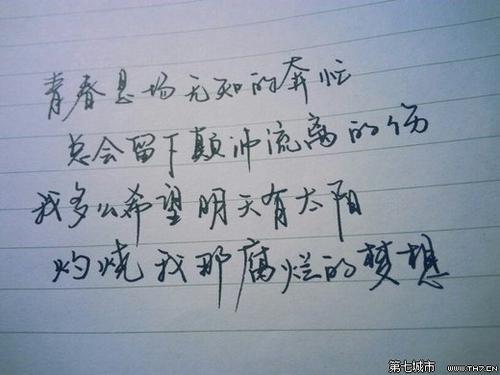 青春是场无知的奔忙
总会留下颠沛流离的伤
我多么希望明天有太阳
灼烧我那腐烂的梦想
第七城市
www.TH7.CN